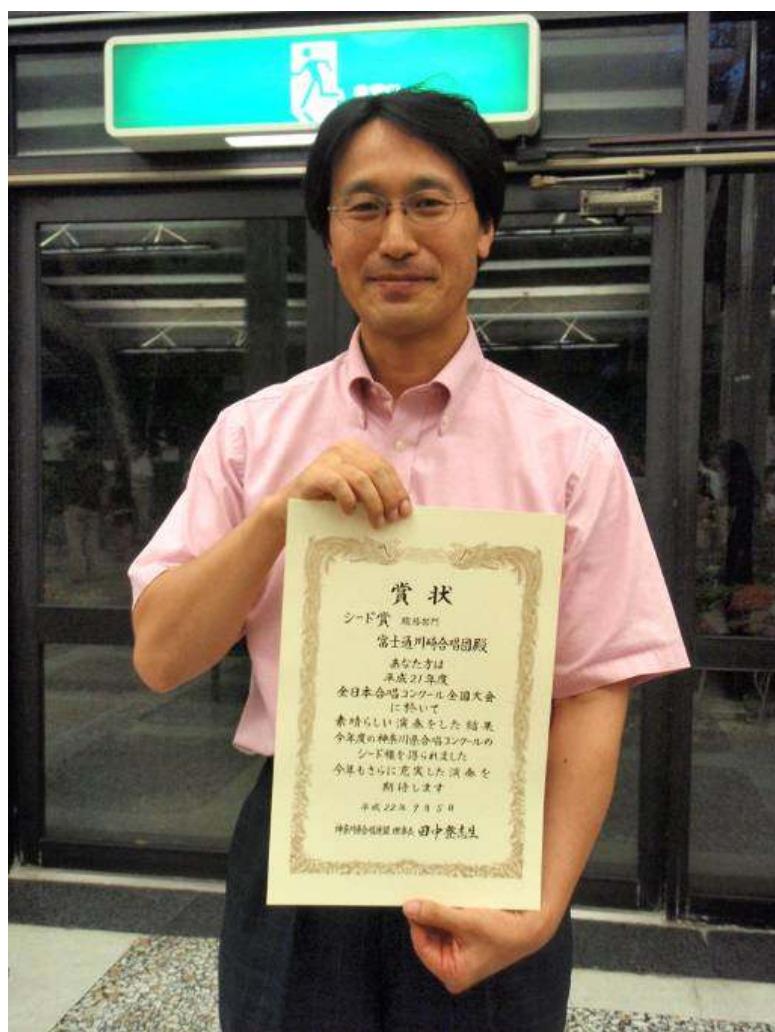 賞状
シード賞 職場部門
富士通川崎合唱団殿
あなた方は
平成21年度
全日本合唱コンクール全国大会
に於いて
素晴らしい演奏をした結果
今年度の神奈川県合唱コンクールの
シード権を得られました
今年もさらに充実した演奏を
期待します
平成22年9月5日
神奈川県合唱連盟 理事長 田中登志生